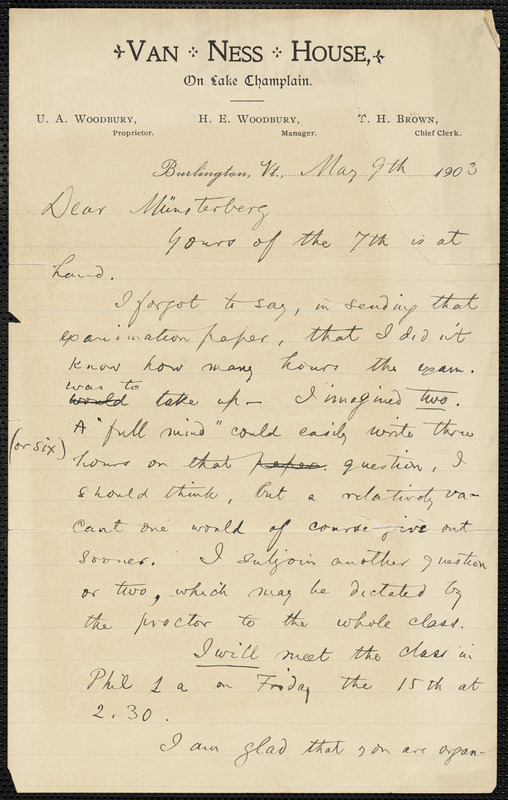 Van Ness House,
On Lake Champlain.
U. A. Woodbury, H. E. Woodbury, T. H. Brown,
Proprietor. Manager. Chief Clerk.
Burlington, Vt., May 9th 1903
Dear Münsterberg
Yours of the 7th is at
hand.
I forgot to say, in sending that
examination paper, that I didn't
know how many hours the exam.
was to
would take up – I imagined two.
A "full mind" could easily write three
(or six)
hours on that paper. question, I
should think, but a relatively va-
cant one would of course give out
sooner. I subjoin another question
or two, which may be dictated by
the proctor to the whole class.
I will meet the class in
Phil 1 a on Friday the 15th at
2.30.
I am glad that you are organ-